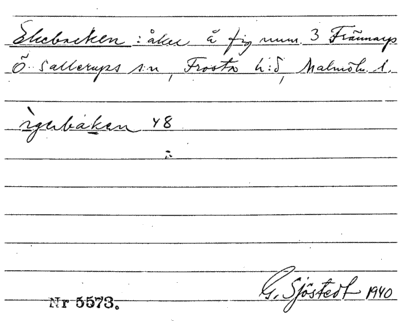 Ekebacken : åker å fig num. 3 Frännarp
Ö Sallerups s:n, Frosta h:d, Malmöh. l.
ìgerbáken 48
G. Sjöstedt 1940
Nr 5573.